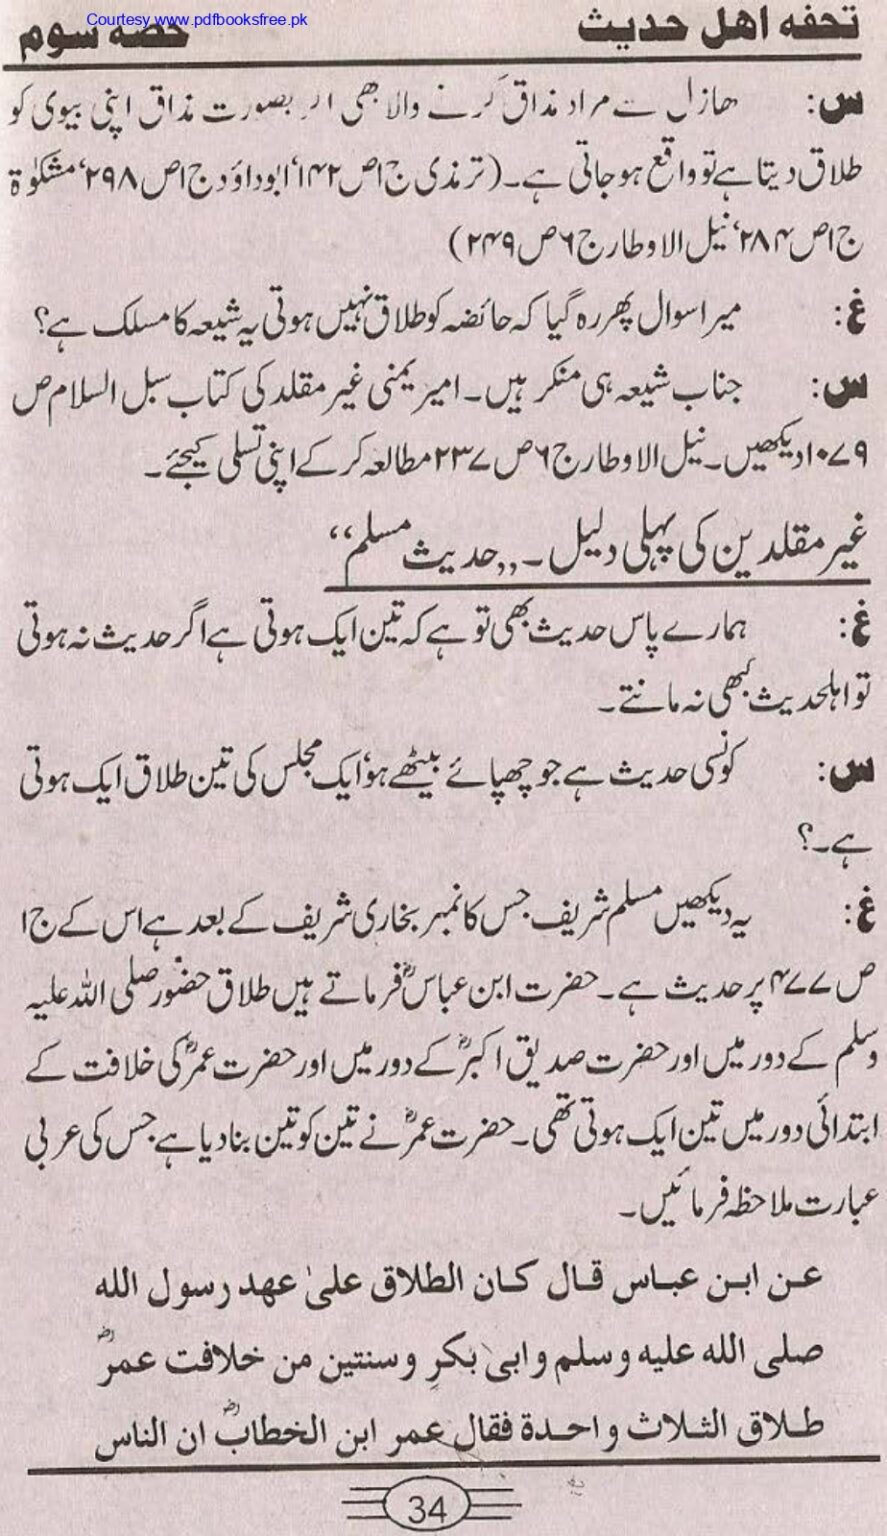 Courtesy www.pdfbooksfree.pk
تحفه اهل حديث حصه سوم
س: ھازل سے مراد مذاق کرنے والا بھی اگر بصورت مذاق اپنی بیوی کو
طلاق دیتا ہے تو واقع ہو جاتی ہے۔ (ترمذی ج۱ص۱۴۲، ابوداؤد ج۱ص۲۹۸، مشکوٰۃ
ج۱ص۲۸۴، نیل الاوطار ج۶ص۲۴۹)
غ: میرا سوال پھر رہ گیا کہ حائضہ کو طلاق نہیں ہوتی یہ شیعہ کا مسلک ہے؟
س: جناب شیعہ ہی منکر ہیں۔ امیر یمنی غیر مقلد کی کتاب سبل السلام ص
۱۰۷۹ دیکھیں۔ نیل الاوطار ج۶ص۲۳۷ مطالعہ کر کے اپنی تسلی کیجئے۔
غیر مقلدین کی پہلی دلیل۔ ,,حدیث مسلم‘‘
غ: ہمارے پاس حدیث بھی تو ہے کہ تین ایک ہوتی ہے اگر حدیث نہ ہوتی
تو اہلحدیث کبھی نہ مانتے۔
س: کونسی حدیث ہے جو چھپائے بیٹھے ہو، ایک مجلس کی تین طلاق ایک ہوتی
ہے۔؟
غ: یہ دیکھیں مسلم شریف جس کا نمبر بخاری شریف کے بعد ہے اس کے ج۱
ص۴۷۷ پر حدیث ہے۔ حضرت ابن عباسؓ فرماتے ہیں طلاق حضور صلی اللہ علیہ
وسلم کے دور میں اور حضرت صدیق اکبرؓ کے دور میں اور حضرت عمرؓ کی خلافت کے
ابتدائی دور میں تین ایک ہوتی تھی۔ حضرت عمرؓ نے تین کو تین بنا دیا ہے جس کی عربی
عبارت ملاحظہ فرمائیں۔
عن ابن عباس قال كان الطلاق علىٰ عهد رسول الله
صلى الله عليه وسلم وابى بكرٍ وسنتين من خلافت عمرؓ
طلاق الثلاث واحدة فقال عمر ابن الخطابؓ ان الناس
34